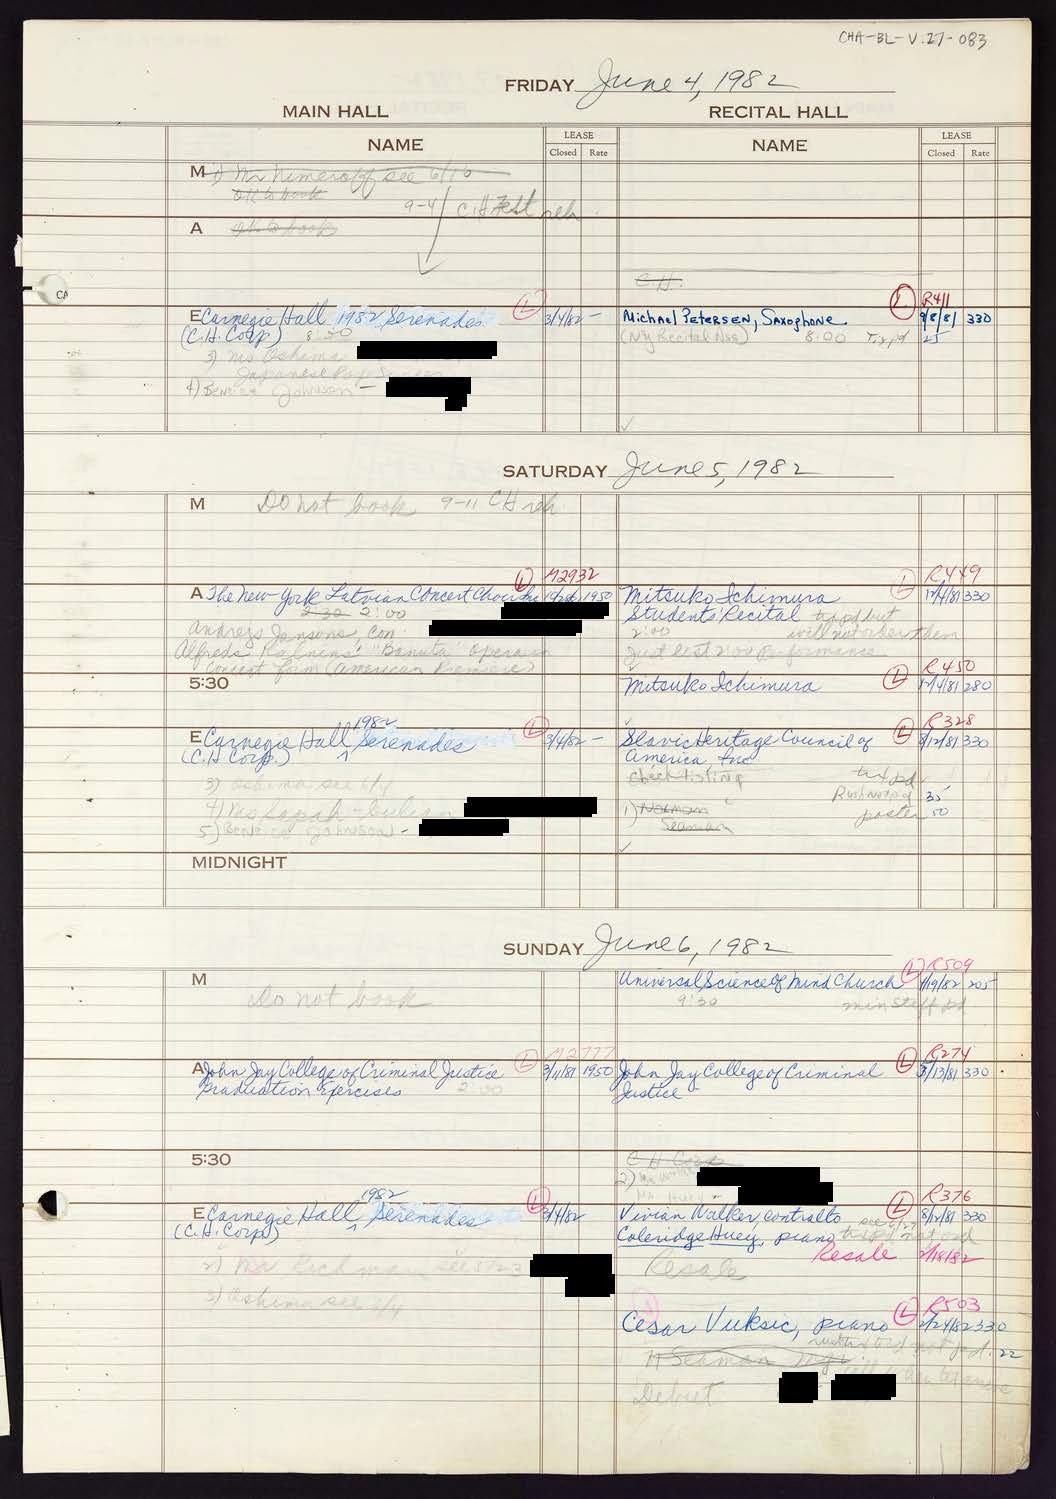 CHA-BL-V.27-083
FRIDAY June 4, 1982
MAIN HALL RECITAL HALL
NAME LEASE Closed Rate NAME LEASE Closed Rate
M 1) Mr Nimeroff see 6/16
OK to book
9-4 C.H. Fest reh
A OK to book
C.H.
L R411
E Carnegie Hall 1982 Serenades L 3/4/82 – Michael Petersen, Saxophone 9/8/81 330
(C.H. Corp) 8:30 (NY Recital Assoc) 8:00 25
3) Ms Oshima
Japanese Pop
4) Bernice Johnson –
SATURDAY June 5, 1982
M Do Not book 9-11 CH reh
L M2932 L R449
A The New York Latvian Concert Choir Inc 1950 Mitsuko Ichimura 12/4/81 330
2:30 2:00 Students' Recital tx ppd but
Andrejs Jansons, Con. 2:00 will not order them
Alfreds Kalnins' "Banuta" Opera in just list 2:00 Performance
Concert form (American Premiere) R450
5:30 Mitsuko Ichimura L 12/4/81 280
1982 L R328
E Carnegie Hall Serenades L 3/4/82 – Slavic Heritage Council of L 8/12/81 330
(C.H. Corp.) America, Inc
Check listing
3) Oshima see 6/4 35
4) Ms 1) Norman poster 50
5) Bernice Johnson – Seaman
MIDNIGHT
SUNDAY June 6, 1982
L R509
M Universal Science of Mind Church 1/19/82 205
Do not book 9:30 min Staff
L M2777 L R274
A John Jay College of Criminal Justice 3/11/81 1950 John Jay College of Criminal 3/13/81 330
Graduation Exercises 2:00 Justice
5:30 C H Corp
2)
1982 L R376
E Carnegie Hall Serenades L 3/4/82 Vivian Walker, contralto L 8/12/81 330
(C.H. Corp) Coleridge Huey, piano see 6/27
Resale 2/18/82
2) Mr Richman see 5/23 Resale
3) Oshima see 6/4
L R503
Cesar Vuksic, piano 2/24/82 330
1) Seaman 22
Debut